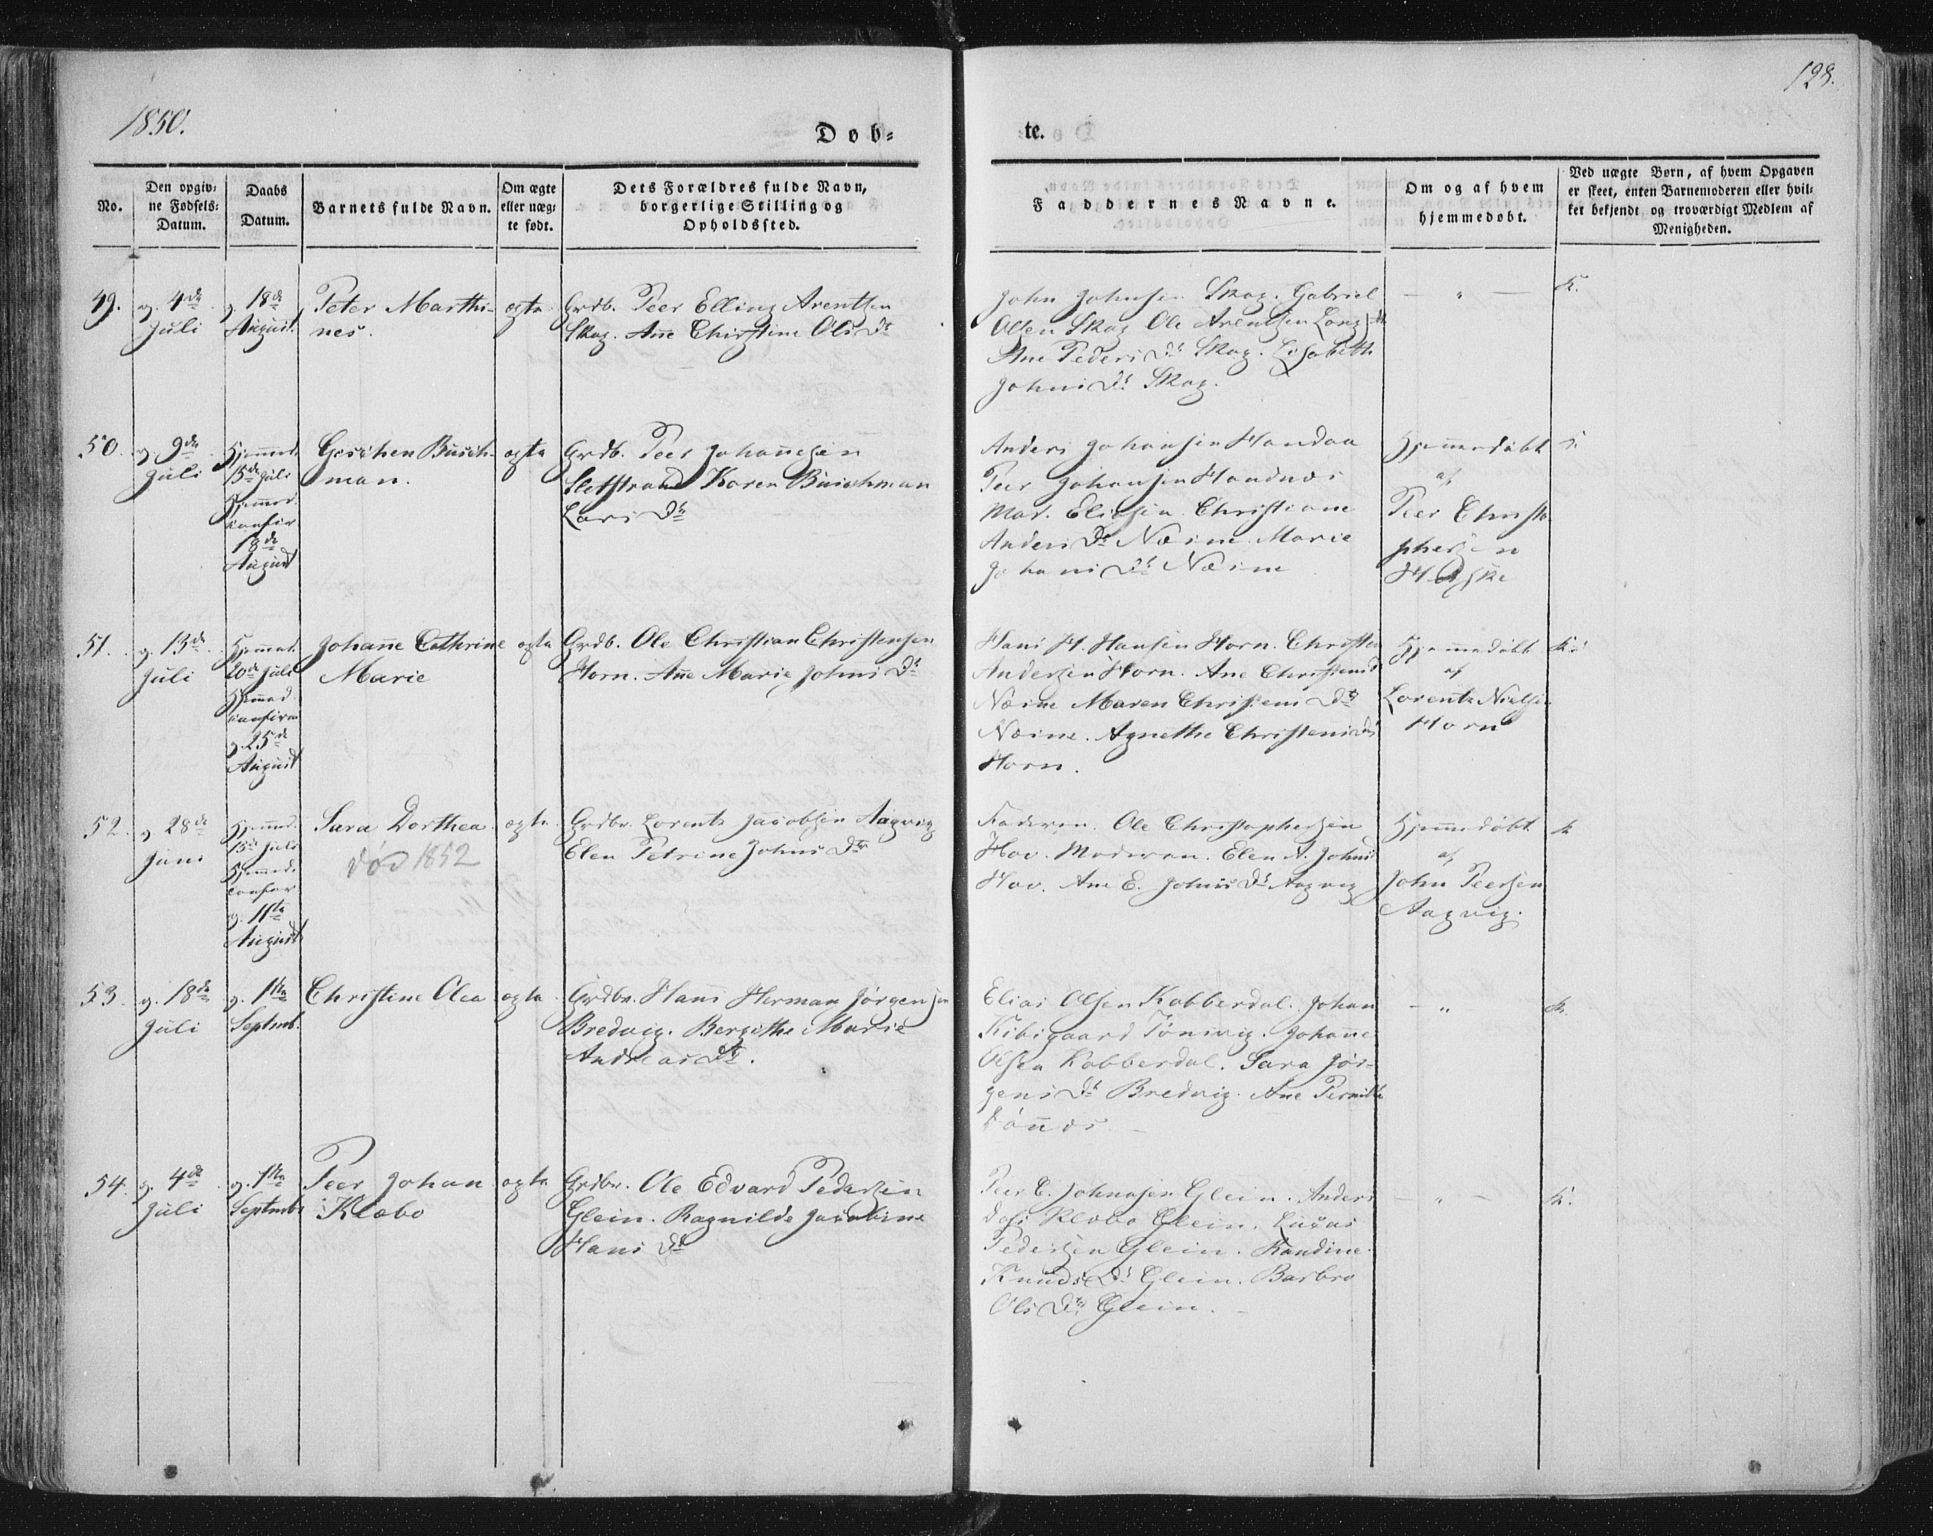 1850.
128.
Døb-
te.
No.
Den opgiv-
ne Fødsels-
Datum.
Daabs
Datum.
Barnets fulde Navn.
Om ægte
eller uæg-
te født.
Dets Forældres fulde Navn,
borgerlige Stilling og
Opholdssted.
Faddernes Navne.
Om og af hvem
hjemmedøbt.
Ved uægte Børn, af hvem Opgaven
er skeet, enten Barnemoderen eller hvil-
ket bekjendt og troværdigt Medlem af
Menigheden.
49.
4de
Juli
18de
August
Peter Marthi-
nes.
ægte
Grdb. Peer Elling Arentsen
Skag. Ane Christine Olsdr
John Johnsen Skag. Gabriel
Olsen Skag Ole Arentsen
Ane Peders Dr Skag. Lisabeth
Johns Dr Skag.
50.
9de
Juli
Hjemmed.
15de Juli
Hjemmed.
confir
18de
August
Büsch-
man.
ægte
Grdb. Peer Johannesen
Sletstrand Karen Büschman
Lars Dr
Anders Johansen Handaa
Peer Johansen Handnæs
Mar. Eliasen. Christiane
Anders Dr Næsne. Marie
Johans Dr Næsne
Hjemmedøbt
af
Peer Christo-
phersen
51.
13de
Juli
Hjemmed.
20de Juli
Hjemmed.
confirm
25de
August
Johanne Cathrine
Marie
ægte
Grdb. Ole Christian Christensen
Horn. Ane Marie Johns Dr
Hans H. Hansen Horn. Christen
Andersen Horn. Ane Christens
Næsne Maren Christens Dr
Næsne. Agnethe Christens Dr
Horn.
Hjemmedøbt
af
Lorents Nielsen
Horn
52.
28de
Juni
Hjemmed.
15de Juli
Hjemmed.
confor
11te
August
Sara Dorthea.
død 1852
ægte
Grdbr. Lorents Jacobsen Aagvig
Elen Petrine Johns Dr
Faderen. Ole Christophersen
Hov. Moderen. Elen A. Johns
Hov. Ane E. Johns Dr Aagvig
Hjemmedøbt
af
John Peersen
Aagvig.
53.
18de
Juli
1ste
Septemb.
Christine Olea
ægte
Grdbr. Hans Herman Jørgensen
Bredvig. Bergithe Marie
Andreas Dr.
Elias Olsen Kobberdal. Johan
Tönsvig. Johanne
Olsen Kobberdal. Sara Jør-
gens Dr Bredvig. Ane Pernille
Dönnæs.
54.
4de
Juli
1ste
Septembr
Peer Johan
Klæbo
ægte
Grdbr. Ole Edvard Pedersen
Glein. Ragnilde Jacobine
Hans Dr
Peer C. Johnasen Glein. Anders
Klæbo Glein. Lucas
Pedersen Glein. Randine
Knuds Dr Glein. Barbro
Ols Dr Glein.